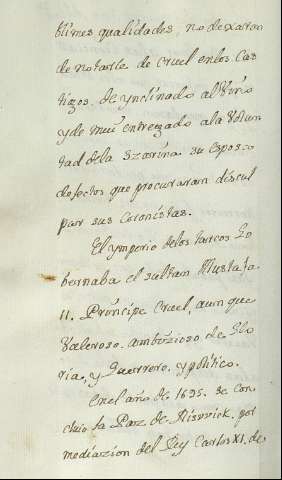 blimes qualidades, no dexaron
de notarle de Cruel en los Cas
tigos. de ynclinado al Vino
y de mui entregado a la Volun
tad de la Szarina su Esposa
defectos que procuraran discul
par sus coronistas.
El ymperio de los turcos Go
bernaba el sultan Mustafa
II. Principe Cruel, aunque
Valeroso. ambizioso de Glo
ria, y Guerrero, y politico.
En el año de 1695. se con
cluio la Paz de Riswick. por
mediazion del Rey Carlos XI. de